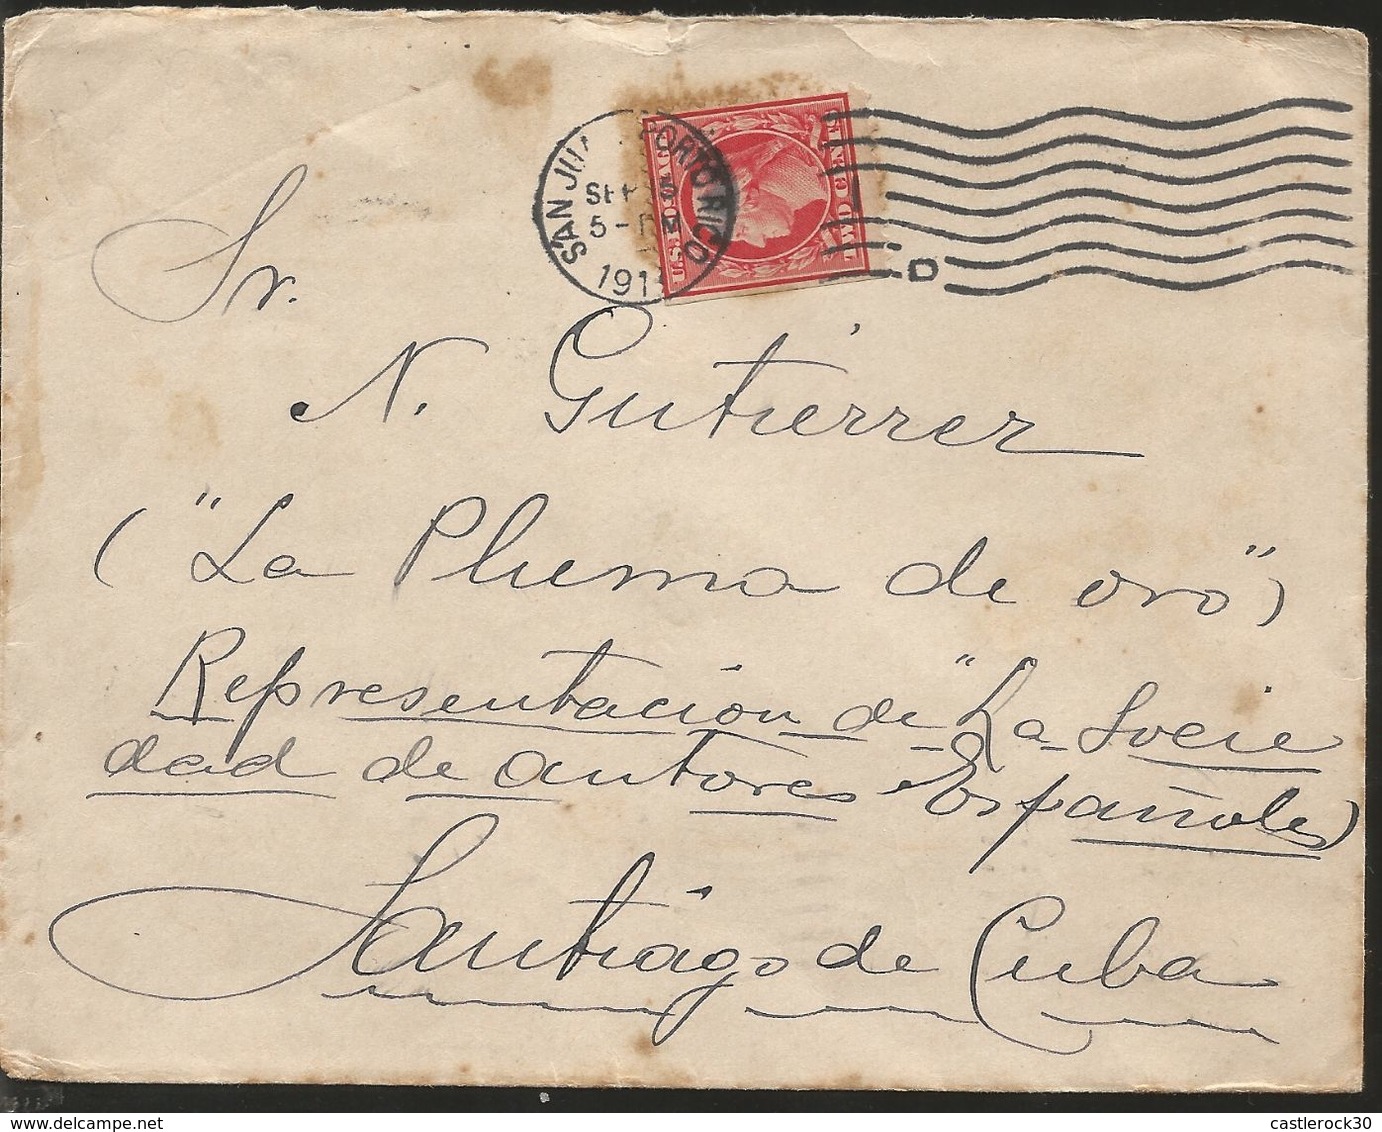 SAN JUAN PORTO RICO
SEP
5-P
191
U.S. POSTAGE
TWO CENTS 2
D
Sr.
N. Gutiérrez
("La Pluma de oro")
Representación de "La Socie
dad de autores Españoles)
Santiago de Cuba
www.delcampe.net
castlerock30